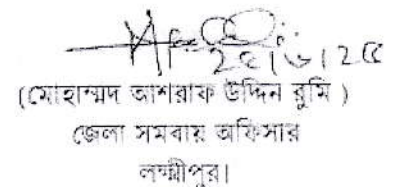 ২৫।৬।২৫
(মোহাম্মদ আশরাফ উদ্দিন রুমি )
জেলা সমবায় অফিসার
লক্ষ্মীপুর।